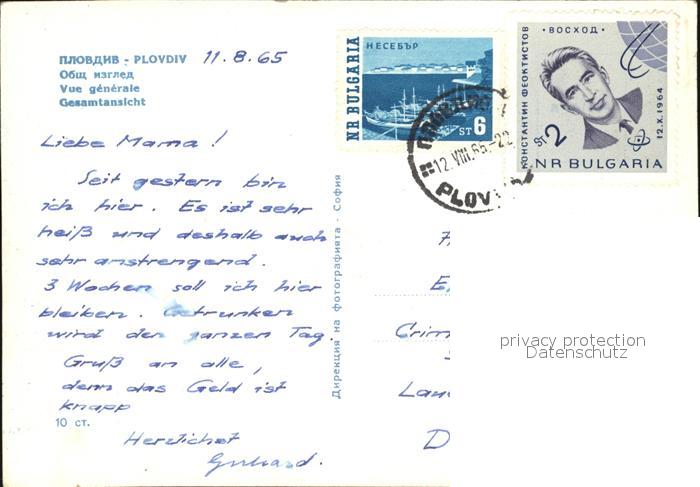 ПЛОВДИВ - PLOVDIV 11.8.65
Общ изглед
Vue générale
Gesamtansicht
Liebe Mama!
Seit gestern bin
ich hier. Es ist sehr
heiß und deshalb auch
sehr anstrengend.
3 Wochen soll ich hier
bleiben. Getrunken
wird den ganzen Tag.
Gruß an alle,
denn das Geld ist
knapp
10 ст.
Herzlichst
Gerhard.
Дирекция на фотографията - София
НЕСЕБЪР
NR BULGARIA
ST 6
ВОСХОД
КОНСТАНТИН ФЕОКТИСТОВ
12.X.1964
ST 2
NR BULGARIA
12.VIII.65.-22
PLOV
Crim
Lan
D
privacy protection
Datenschutz